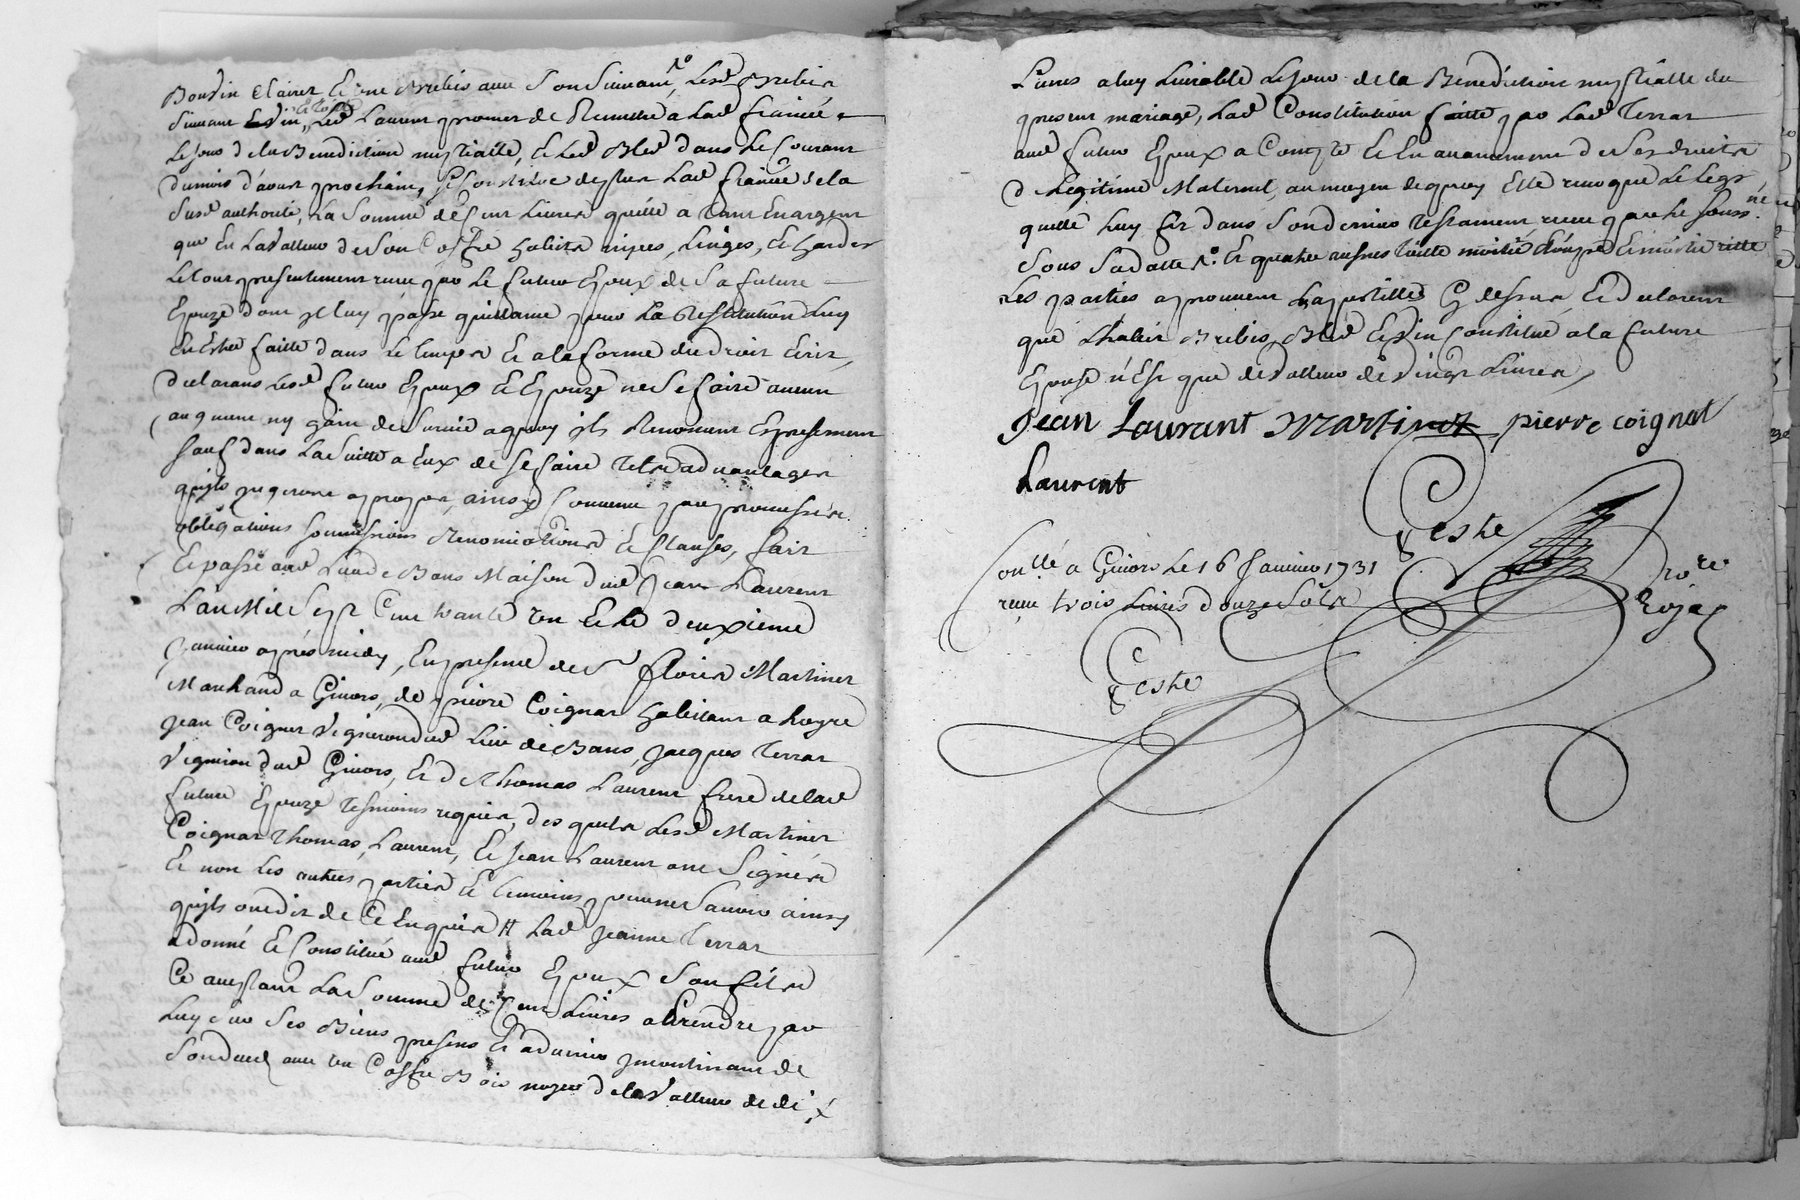 Boudin Clairet et une Brebis avec Son Suivant, Lesd Brebis
Suivant et vin et toille Led Laurent promet de Remettre a Lad fiancée
Le Jour de la Benediction nuptialle, et Led Bled dans Le Courant
du mois d'aoust prochain, Se Constitue de plus Lad fiancée de la
Susd authorité, La Somme de Cent Livres qu'elle a tant En argent
que En La Valleur de Son Coffre habits nipes, Linges, et hardes
Le tout presentement receu par Le futur Epoux de Sa future
Epouze dont Il luy passe quittance pour La Restitution Luy
En Estre faitte dans Le temps et a la forme du droit Ecrit,
declarans Lesd futur Epoux et Epouze ne Se faire aucun
augment ny gain de Survie a quoy ils Renoncent Expressement
Sauf dans La Suitte a Eux de Se faire tels advantages
qu'ils jugeront a propos, ainsy Convenu par promesses
obligations Soumissions Renonciations et Clauses, fait
Et passé aud Lieu de Bans Maison dud Jean Laurent
L'an Mil Sept Cent trante un et le deuxieme
Janvier aprés midy, En presence de Sr floris Martinet
Marchand a Givors, de pierre Coignat habitant a Loyre
Jean Coignet Vigneron dud Lieu de Bans, Jacques Terrat
Vigneron dud Givors, Et de Thomas Laurent frere de lad
future Epouze tesmoins requis, des quels Lesd Martinet
Coignat Thomas, Laurent, Et Jean Laurent ont Signés
Et non Les autres parties Et temoins pour ne Savoir ainsy
qu'ils ont dit de Ce Enquis # Lad Jeanne Terrat
a donné et Constitué aud futur Epoux Son fils
Ce acceptant La Somme de Cent Livres a Prendre par
Luy Sur Ses Biens presens Et advenir Incontinant de
Son deced avec un Coffre Bois noyer de la Valleur de dix
Livres a luy Livrable Le Jour de la Benediction nuptialle du
present mariage, Lad Constitution faitte par Lad Terrat
aud futur Epoux a Compte Et En avancement de Ses droits
de Legitime Maternel, au moyen de quoy Elle revoque Le Legs
quelle Luy fit dans Son dernier testament receu par Le Souss.né
Sous Sa datte
Les parties aprouvent L'apostille Cy dessus, Et declarent
que L'habit Brebis Bled Et Vin Constitué a la future
Epouse n'Est que de Valleur de Vingt Livres,
Jean Laurant Martinet pierre coignat
Laurent
Ceste
Con.llé a Givors Le 16 Janvier 1731
receu trois Livres douze Sols
Ceste
No.re
Royal